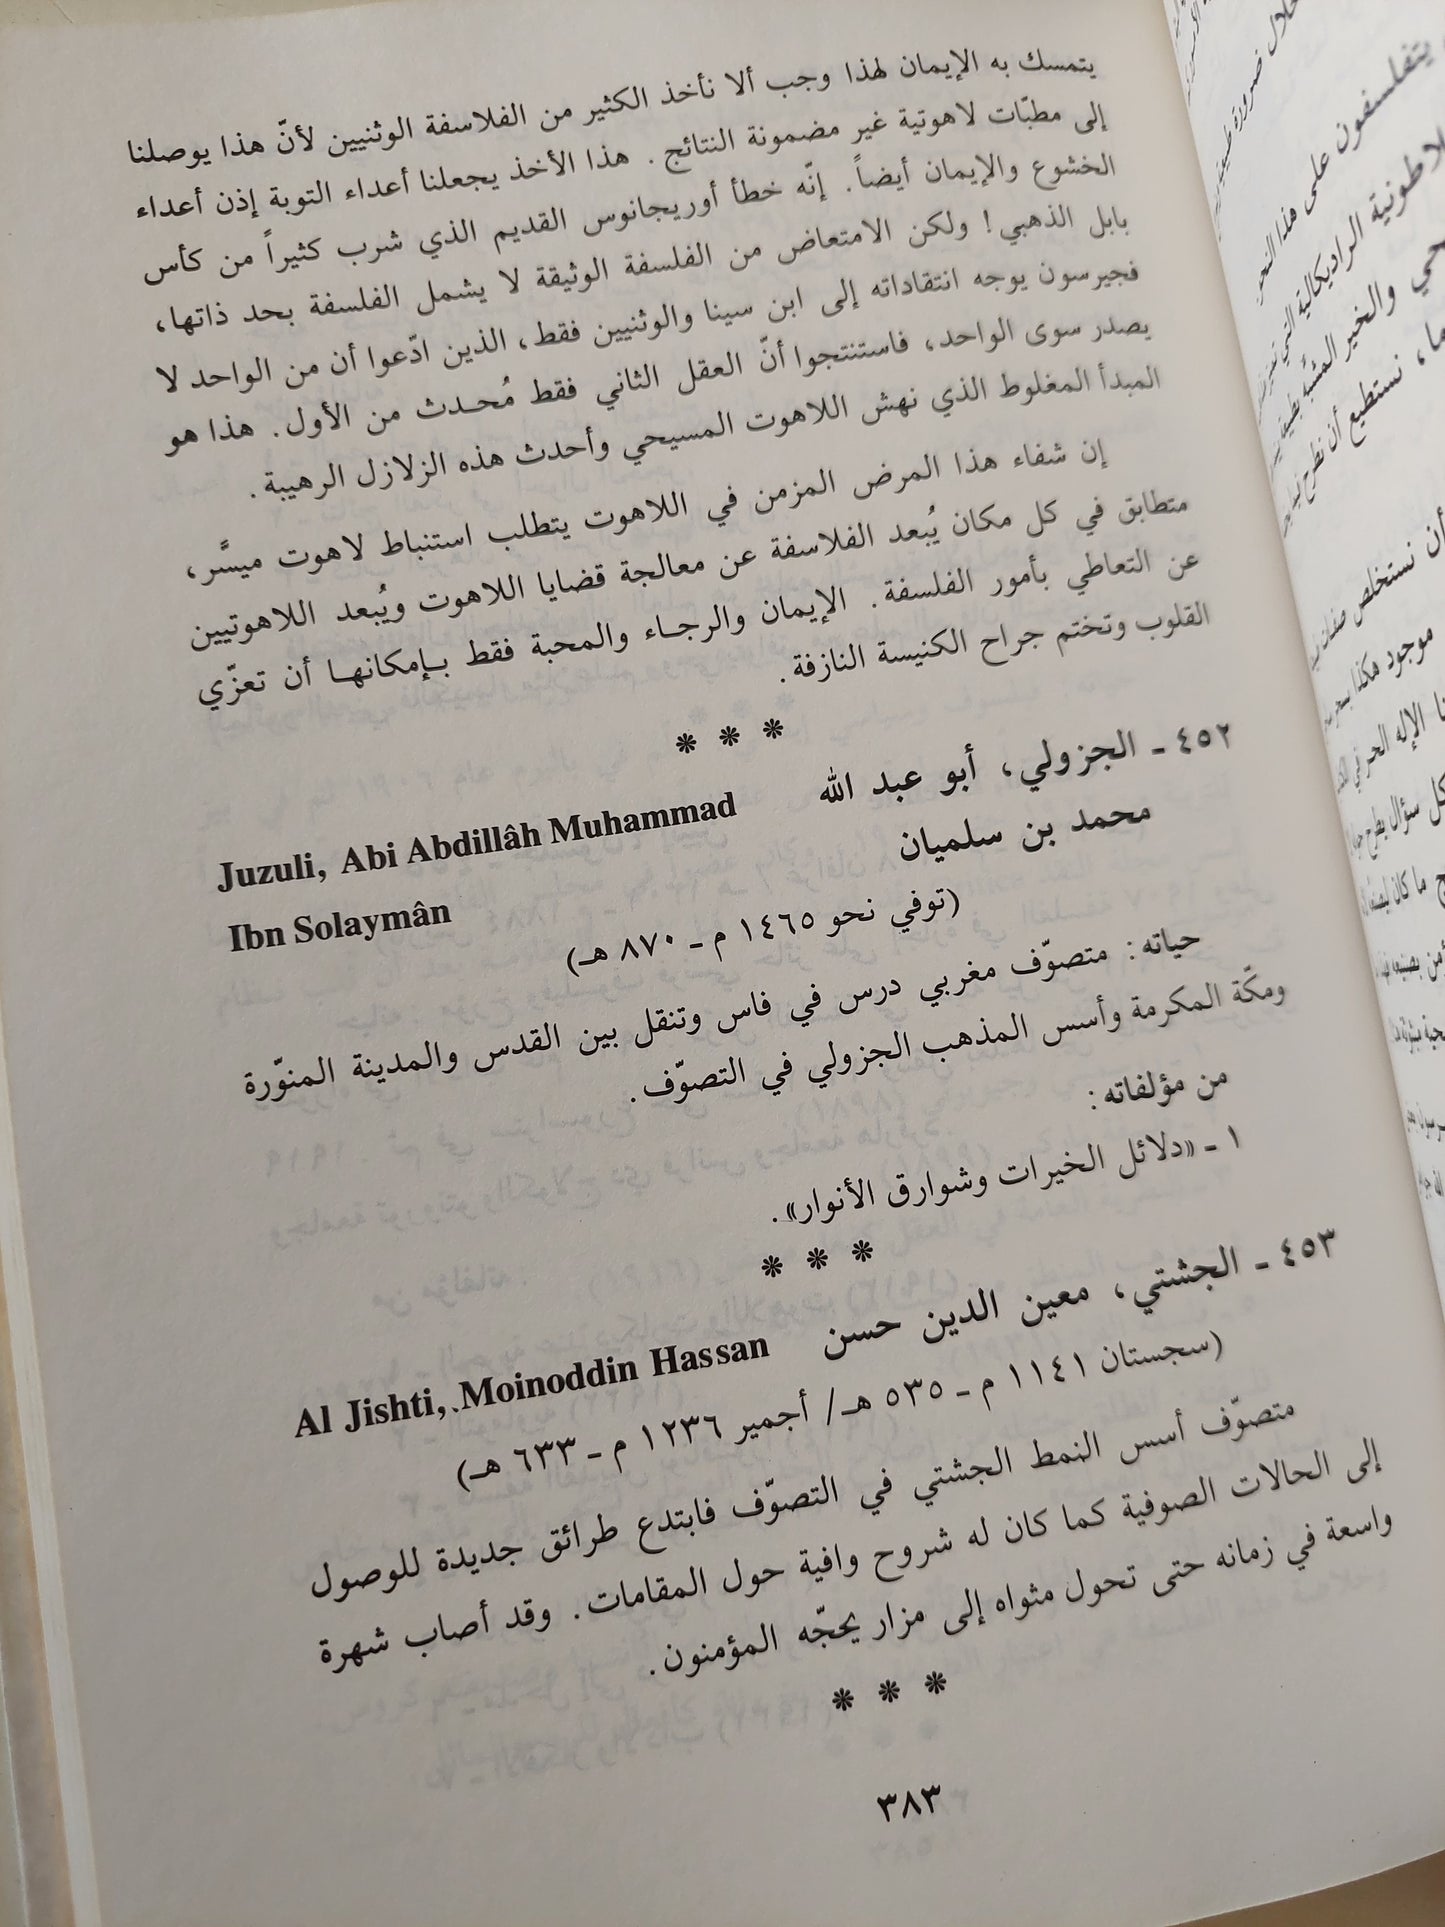 يتمسك به الإيمان لهذا وجب ألا نأخذ الكثير من الفلاسفة الوثنيين لأنّ هذا يوصلنا
إلى مطبّات لاهوتية غير مضمونة النتائج. هذا الأخذ يجعلنا أعداء التوبة إذن أعداء
الخشوع والإيمان أيضاً. إنّه خطأ أوريجانوس القديم الذي شرب كثيراً من كأس
بابل الذهبي! ولكن الامتعاض من الفلسفة الوثيقة لا يشمل الفلسفة بحد ذاتها،
فجيرسون يوجه انتقاداته إلى ابن سينا والوثنيين فقط، الذين ادّعوا أن من الواحد لا
يصدر سوى الواحد، فاستنتجوا أنّ العقل الثاني فقط مُحدث من الأول. هذا هو
المبدأ المغلوط الذي نهش اللاهوت المسيحي وأحدث هذه الزلازل الرهيبة.
إن شفاء هذا المرض المزمن في اللاهوت يتطلب استنباط لاهوت ميسَّر،
متطابق في كل مكان يُبعد الفلاسفة عن معالجة قضايا اللاهوت ويُبعد اللاهوتيين
عن التعاطي بأمور الفلسفة. الإيمان والرجاء والمحبة فقط بإمكانها أن تعزّي
القلوب وتختم جراح الكنيسة النازفة.
* * *
٤٥٢ - الجزولي، أبو عبد الله Juzuli, Abi Abdillâh Muhammad
محمد بن سلميان Ibn Solaymân
(توفي نحو ١٤٦٥ م - ٨٧٠ هـ)
حياته: متصوّف مغربي درس في فاس وتنقل بين القدس والمدينة المنوّرة
ومكّة المكرمة وأسس المذهب الجزولي في التصوّف.
من مؤلفاته:
١ - «دلائل الخيرات وشوارق الأنوار».
* * *
٤٥٣ - الجشتي، معين الدين حسن Al Jishti, Moinoddin Hassan
(سجستان ١١٤١ م - ٥٣٥ هـ/ أجمير ١٢٣٦ م - ٦٣٣ هـ)
متصوّف أسس النمط الجشتي في التصوّف فابتدع طرائق جديدة للوصول
إلى الحالات الصوفية كما كان له شروح وافية حول المقامات. وقد أصاب شهرة
واسعة في زمانه حتى تحول مثواه إلى مزار يحجّه المؤمنون.
* * *
٣٨٣
يتفلسفون على هذا النحو
الراديكالية التي
والخير
نستطيع أن نطرح
أن نستخلص صفات
موجود هكذا
كل سؤال يطرح